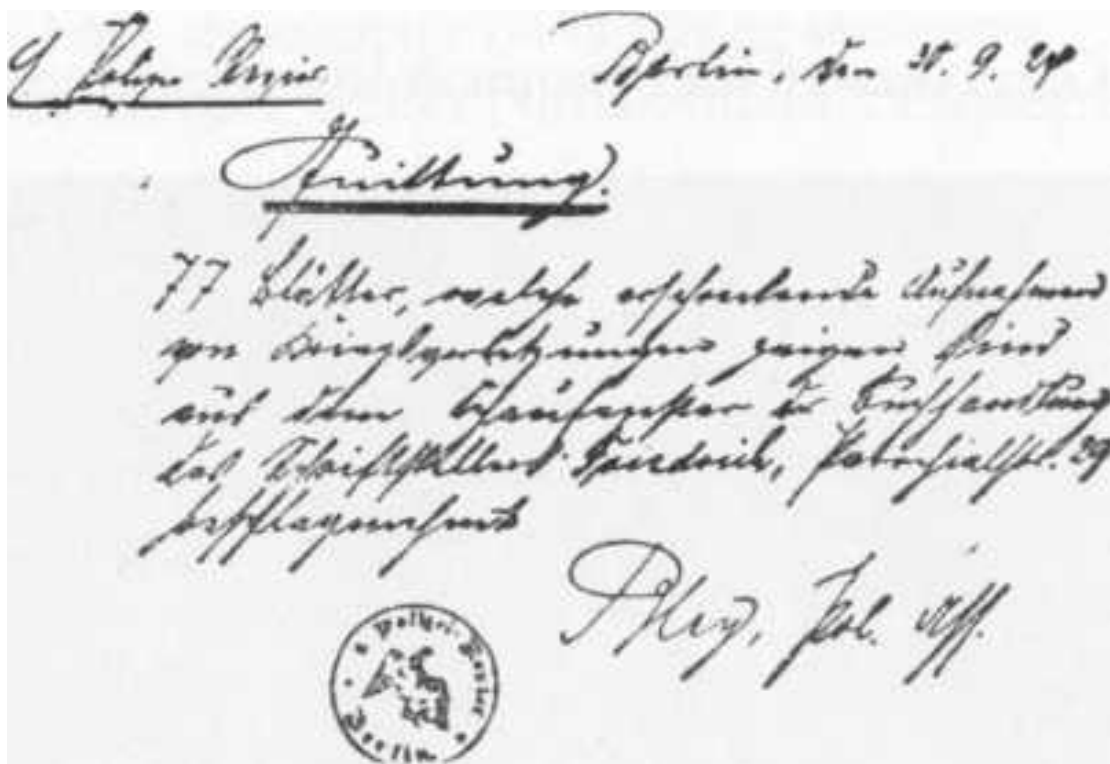 Polizei Revier. Berlin, den 30. 9. 24
Quittung.
77 Blätter, welche erschreckende Aufnahmen
von Kriegsverletzungen zeigen sind
aus dem Schaufenster der Buchhandlung
des Schriftstellers Friedrich, Parochialstr. 29
beschlagnahmt
Pol. Ass.
Polizei-Revier
Berlin